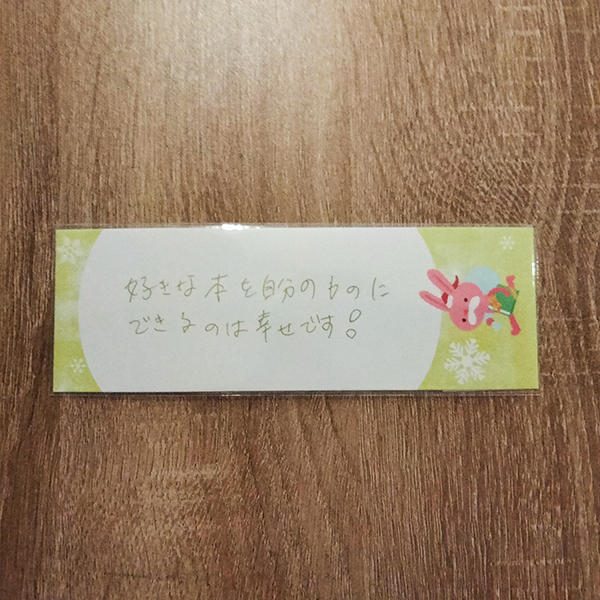 好きな本を自分のものに
できるのは幸せです!